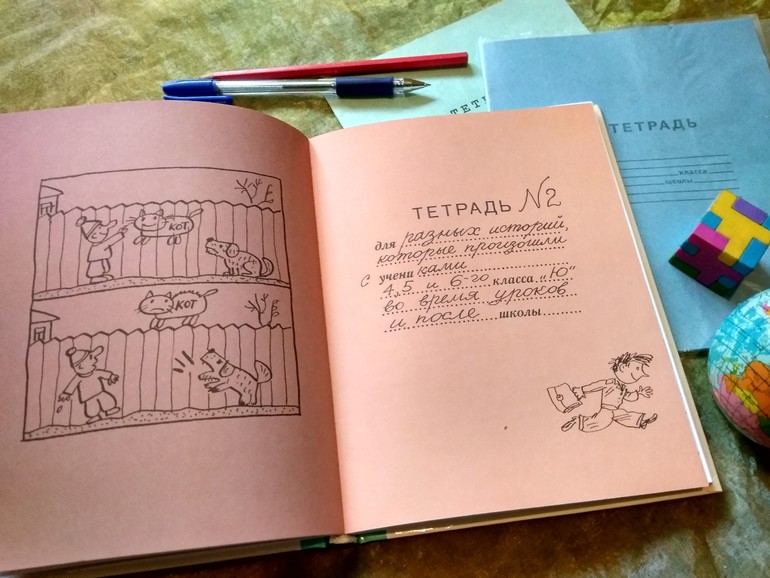 КОТ
КОТ
ТЕТРАДЬ №2
для разных историй,
которые произошли
с учениками
4, 5 и 6-го класса „Ю"
во время уроков
и после школы
ТЕТРАДЬ
класса
школы